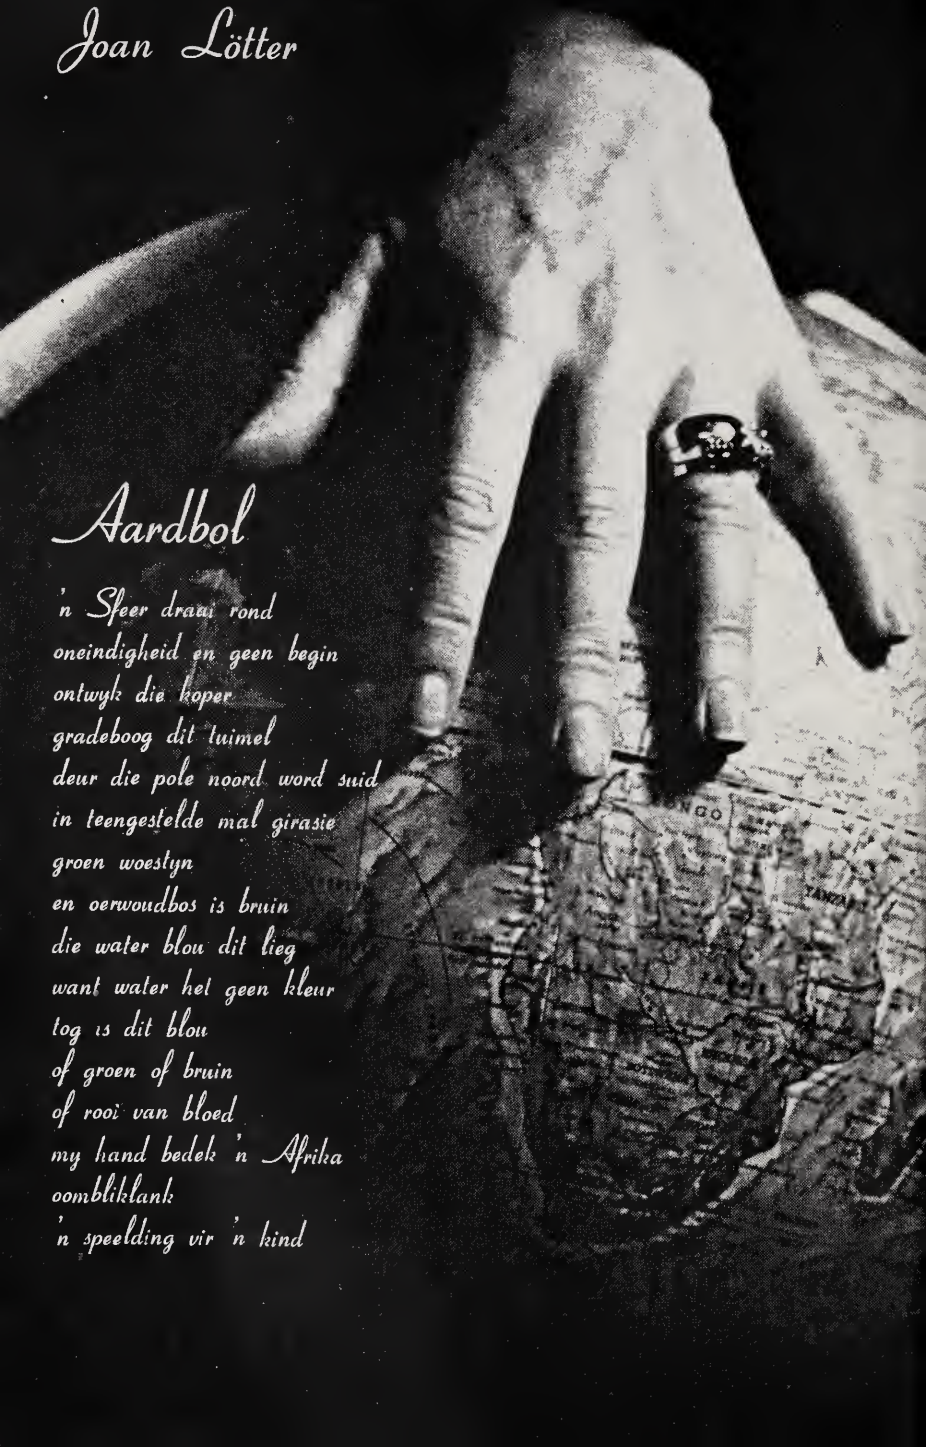 Joan Lötter
Aardbol
'n Sfeer draai rond
oneindigheid en geen begin
ontwyk die koper
gradeboog dit tuimel
deur die pole noord word suid
in teengestelde mal girasie
groen woestyn
en oerwoudbos is bruin
die water blou dit lieg
want water het geen kleur
tog is dit blou
of groen of bruin
of rooi van bloed
my hand bedek 'n Afrika
oombliklank
'n speelding vir 'n kind
NGO
TANZA